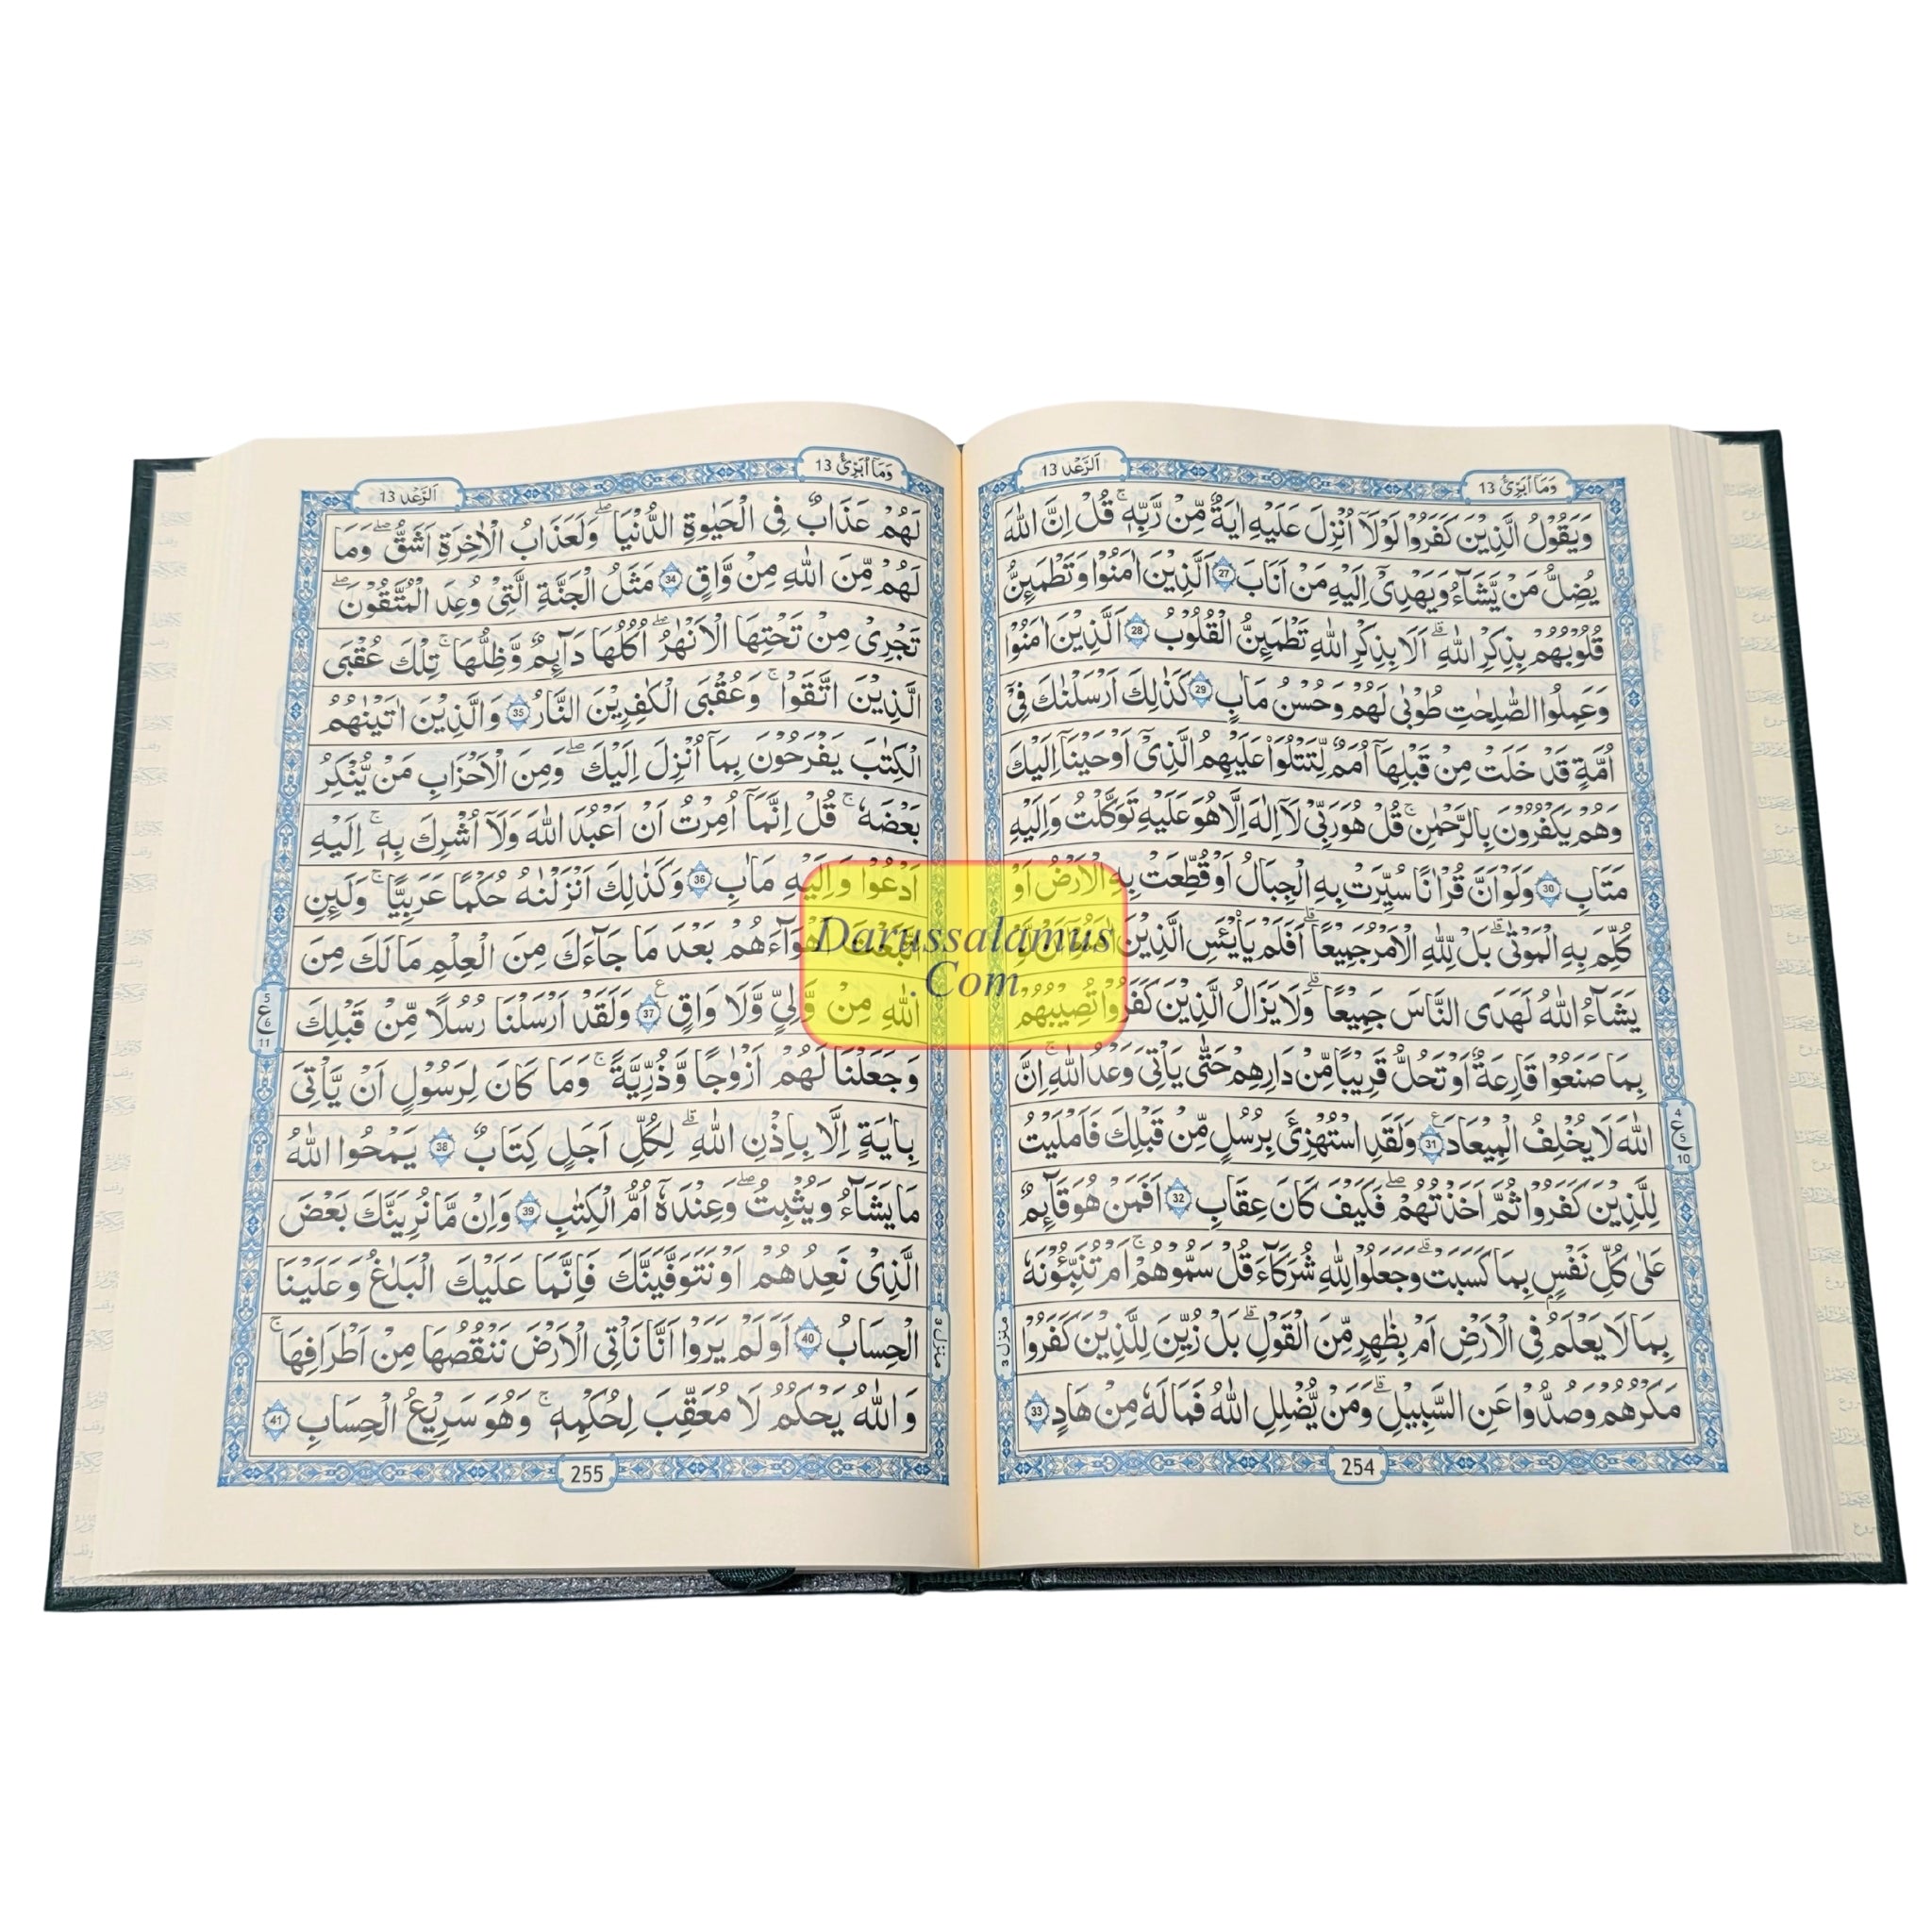 وَمَآ اُبَرِّئُ 13
اَلرَّعْد 13
وَيَقُوْلُ الَّذِيْنَ كَفَرُوْا لَوْلَآ اُنْزِلَ عَلَيْهِ اٰيَةٌ مِّنْ رَّبِّهٖ ۚ قُلْ اِنَّ اللّٰهَ
يُضِلُّ مَنْ يَّشَآءُ وَيَهْدِىْٓ اِلَيْهِ مَنْ اَنَابَ 27 اَلَّذِيْنَ اٰمَنُوْا وَتَطْمَئِنُّ
قُلُوْبُهُمْ بِذِكْرِ اللّٰهِ ۗ اَلَا بِذِكْرِ اللّٰهِ تَطْمَئِنُّ الْقُلُوْبُ 28 اَلَّذِيْنَ اٰمَنُوْا
وَعَمِلُوا الصّٰلِحٰتِ طُوْبٰى لَهُمْ وَحُسْنُ مَاٰبٍ 29 كَذٰلِكَ اَرْسَلْنٰكَ فِىْٓ
اُمَّةٍ قَدْ خَلَتْ مِنْ قَبْلِهَآ اُمَمٌ لِّتَتْلُوَا۟ عَلَيْهِمُ الَّذِىْٓ اَوْحَيْنَآ اِلَيْكَ
وَهُمْ يَكْفُرُوْنَ بِالرَّحْمٰنِ ۚ قُلْ هُوَ رَبِّىْ لَآ اِلٰهَ اِلَّا هُوَ عَلَيْهِ تَوَكَّلْتُ وَاِلَيْهِ
مَتَابِ 30 وَلَوْ اَنَّ قُرْاٰنًا سُيِّرَتْ بِهِ الْجِبَالُ اَوْ قُطِّعَتْ بِهِ الْاَرْضُ اَوْ
كُلِّمَ بِهِ الْمَوْتٰى ۗ بَلْ لِّلّٰهِ الْاَمْرُ جَمِيْعًا ۗ اَفَلَمْ يَا۟يْـَٔسِ الَّذِيْنَ
يَشَآءُ اللّٰهُ لَهَدَى النَّاسَ جَمِيْعًا ۗ وَلَا يَزَالُ الَّذِيْنَ كَفَرُوْا تُصِيْبُهُمْ
بِمَا صَنَعُوْا قَارِعَةٌ اَوْ تَحُلُّ قَرِيْبًا مِّنْ دَارِهِمْ حَتّٰى يَاْتِىَ وَعْدُ اللّٰهِ ۚ اِنَّ
اللّٰهَ لَا يُخْلِفُ الْمِيْعَادَ 31 وَلَقَدِ اسْتُهْزِئَ بِرُسُلٍ مِّنْ قَبْلِكَ فَاَمْلَيْتُ
لِلَّذِيْنَ كَفَرُوْا ثُمَّ اَخَذْتُهُمْ ۖ فَكَيْفَ كَانَ عِقَابِ 32 اَفَمَنْ هُوَ قَآئِمٌ
عَلٰى كُلِّ نَفْسٍۢ بِمَا كَسَبَتْ ۗ وَجَعَلُوْا لِلّٰهِ شُرَكَآءَ قُلْ سَمُّوْهُمْ ۚ اَمْ تُنَبِّئُوْنَهٗ
بِمَا لَا يَعْلَمُ فِى الْاَرْضِ اَمْ بِظَاهِرٍ مِّنَ الْقَوْلِ ۗ بَلْ زُيِّنَ لِلَّذِيْنَ كَفَرُوْا
مَكْرُهُمْ وَصُدُّوْا عَنِ السَّبِيْلِ ۗ وَمَنْ يُّضْلِلِ اللّٰهُ فَمَا لَهٗ مِنْ هَادٍ 33
4
ع
5
10
منزل 3
254
وَمَآ اُبَرِّئُ 13
اَلرَّعْد 13
لَهُمْ عَذَابٌ فِى الْحَيٰوةِ الدُّنْيَا ۖ وَلَعَذَابُ الْاٰخِرَةِ اَشَقُّ ۖ وَمَا
لَهُمْ مِّنَ اللّٰهِ مِنْ وَّاقٍ 34 مَثَلُ الْجَنَّةِ الَّتِىْ وُعِدَ الْمُتَّقُوْنَ ۖ
تَجْرِىْ مِنْ تَحْتِهَا الْاَنْهٰرُ ۖ اُكُلُهَا دَآئِمٌ وَّظِلُّهَا ۚ تِلْكَ عُقْبَى
الَّذِيْنَ اتَّقَوْا ۚ وَعُقْبَى الْكٰفِرِيْنَ النَّارُ 35 وَالَّذِيْنَ اٰتَيْنٰهُمُ
الْكِتٰبَ يَفْرَحُوْنَ بِمَآ اُنْزِلَ اِلَيْكَ ۖ وَمِنَ الْاَحْزَابِ مَنْ يُّنْكِرُ
بَعْضَهٗ ۚ قُلْ اِنَّمَآ اُمِرْتُ اَنْ اَعْبُدَ اللّٰهَ وَلَآ اُشْرِكَ بِهٖ ۚ اِلَيْهِ
اَدْعُوْا وَاِلَيْهِ مَاٰبِ 36 وَكَذٰلِكَ اَنْزَلْنٰهُ حُكْمًا عَرَبِيًّا ۚ وَلَئِنِ
اتَّبَعْتَ اَهْوَآءَهُمْ بَعْدَ مَا جَآءَكَ مِنَ الْعِلْمِ مَا لَكَ مِنَ
اللّٰهِ مِنْ وَّلِىٍّ وَّلَا وَاقٍ 37 وَلَقَدْ اَرْسَلْنَا رُسُلًا مِّنْ قَبْلِكَ
وَجَعَلْنَا لَهُمْ اَزْوَاجًا وَّذُرِّيَّةً ۚ وَمَا كَانَ لِرَسُوْلٍ اَنْ يَّاْتِىَ
بِاٰيَةٍ اِلَّا بِاِذْنِ اللّٰهِ ۗ لِكُلِّ اَجَلٍ كِتَابٌ 38 يَمْحُوا اللّٰهُ
مَا يَشَآءُ وَيُثْبِتُ ۖ وَعِنْدَهٗٓ اُمُّ الْكِتٰبِ 39 وَاِنْ مَّا نُرِيَنَّكَ بَعْضَ
الَّذِىْ نَعِدُهُمْ اَوْ نَتَوَفَّيَنَّكَ فَاِنَّمَا عَلَيْكَ الْبَلٰغُ وَعَلَيْنَا
الْحِسَابُ 40 اَوَلَمْ يَرَوْا اَنَّا نَاْتِى الْاَرْضَ نَنْقُصُهَا مِنْ اَطْرَافِهَا ۚ
وَاللّٰهُ يَحْكُمُ لَا مُعَقِّبَ لِحُكْمِهٖ ۚ وَهُوَ سَرِيْعُ الْحِسَابِ 41
5
ع
6
11
منزل 3
255
Darussalamus
.Com